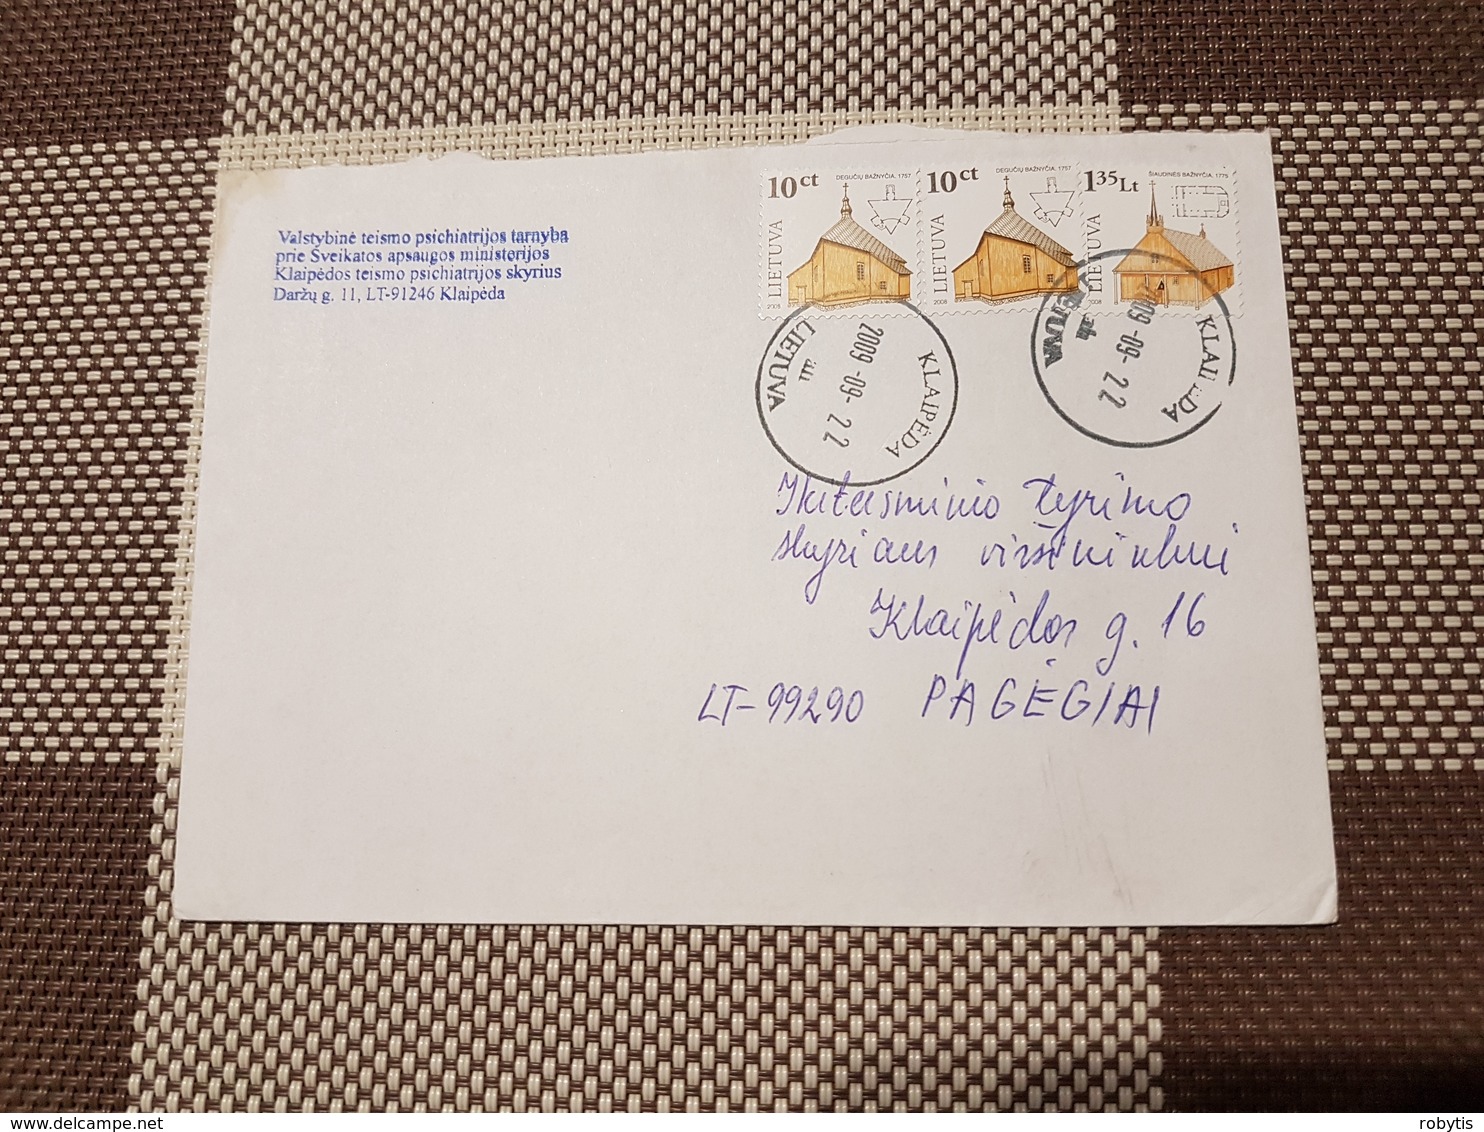 Valstybinė teismo psichiatrijos tarnyba
prie Sveikatos apsaugos ministerijos
Klaipėdos teismo psichiatrijos skyrius
Daržų g. 11, LT-91246 Klaipėda
10 ct
DEGUČIŲ BAŽNYČIA, 1757
LIETUVA
2008
10 ct
DEGUČIŲ BAŽNYČIA, 1757
LIETUVA
2008
1 35 Lt
ŠIAUDINĖS BAŽNYČIA, 1775
LIETUVA
2008
KLAIPĖDA
2009-09-22
LIETUVA
KLAIPĖDA
2009-09-22
LIETUVA
Ikiteisminio tyrimo
skyriaus viršininkui
Klaipėdos g. 16
LT-99290 PAGĖGIAI
robytis